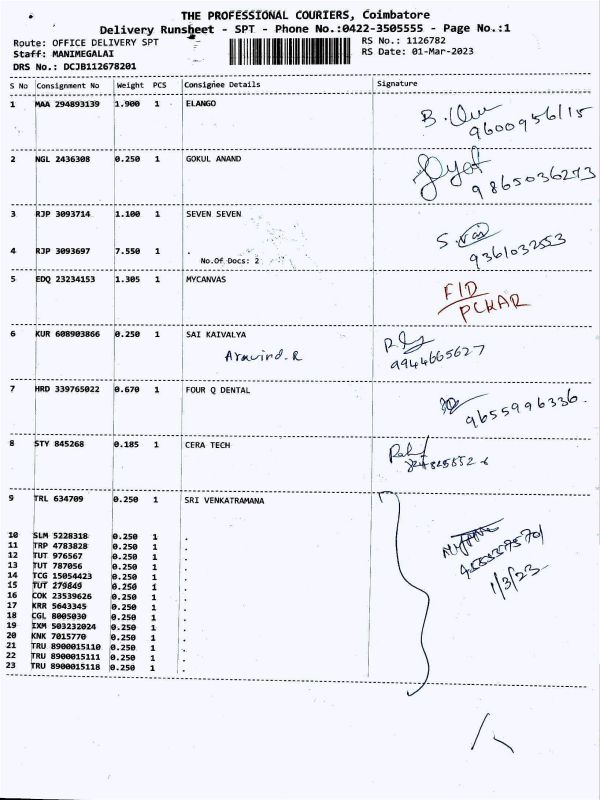 THE PROFESSIONAL COURIERS, Coimbatore
Delivery Runsheet - SPT - Phone No.:0422-3505555 - Page No.:1
Route: OFFICE DELIVERY SPT RS No.: 1126782
Staff: MANIMEGALAI RS Date: 01-Mar-2023
DRS No.: DCJB112678201
S No Consignment No Weight PCS Consignee Details Signature
1 MAA 294893139 1.900 1 ELANGO
9600956115
2 NGL 2436308 0.250 1 GOKUL ANAND
9865036273
3 RJP 3093714 1.100 1 SEVEN SEVEN
4 RJP 3093697 7.550 1 .
No.Of Docs: 2
9361032553
5 EDQ 23234153 1.305 1 MYCANVAS
FID
PCKAR
6 KUR 608903866 0.250 1 SAI KAIVALYA
Aravind.R
9944665627
7 HRD 339765022 0.670 1 FOUR Q DENTAL
9655996336.
8 STY 845268 0.185 1 CERA TECH
9 TRL 634709 0.250 1 SRI VENKATRAMANA
10 SLM 5228318 0.250 1 .
11 TRP 4783828 0.250 1 .
12 TUT 976567 0.250 1 .
13 TUT 787056 0.250 1 .
14 TCG 15054423 0.250 1 .
15 TUT 279849 0.250 1 .
16 COK 23539626 0.250 1 .
17 KRR 5643345 0.250 1 .
18 CGL 8005030 0.250 1 .
19 IXM 503232024 0.250 1 .
20 KNK 7015770 0.250 1 .
21 TRU 8900015110 0.250 1 .
22 TRU 8900015111 0.250 1 .
23 TRU 8900015118 0.250 1 .
1/3/23